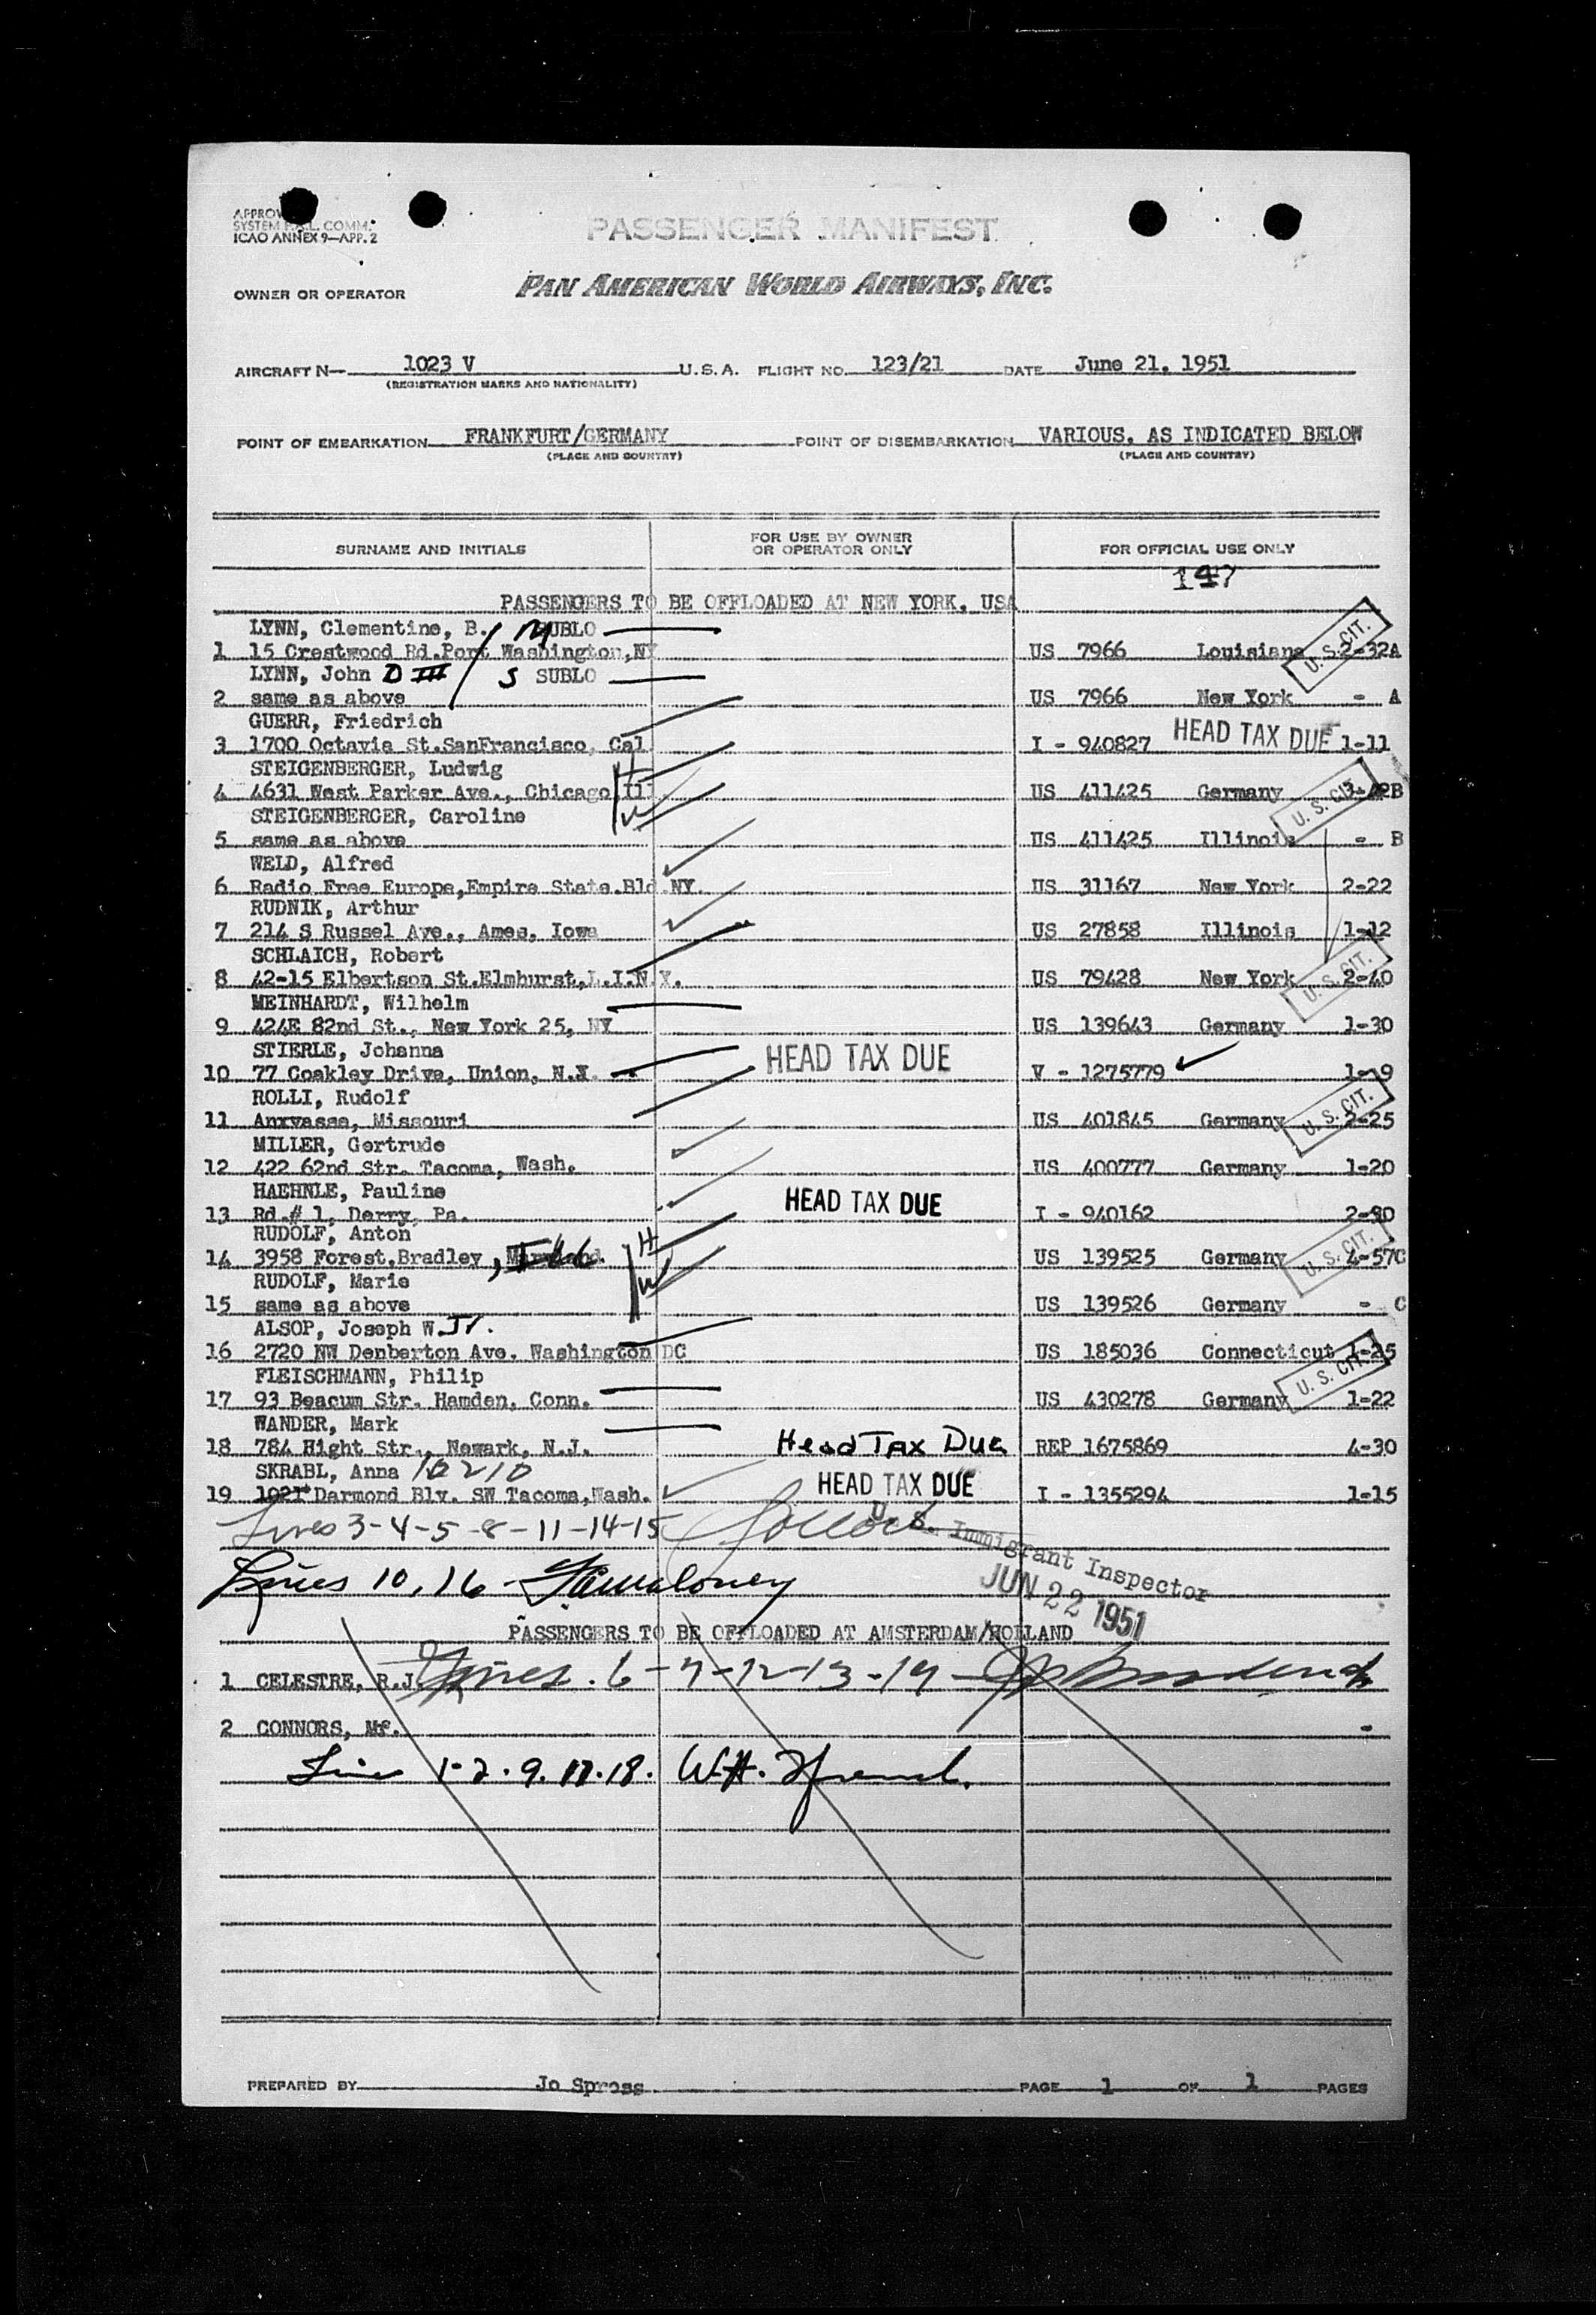 APPROV
SYSTEM F.A.L. COMM.
ICAO ANNEX 9—APP. 2
PASSENGER MANIFEST
OWNER OR OPERATOR PAN AMERICAN WORLD AIRWAYS, INC.
AIRCRAFT N— 1023 V U.S.A. FLIGHT NO. 123/21 DATE June 21, 1951
(REGISTRATION MARKS AND NATIONALITY)
POINT OF EMBARKATION FRANKFURT/GERMANY POINT OF DISEMBARKATION VARIOUS, AS INDICATED BELOW
(PLACE AND COUNTRY) (PLACE AND COUNTRY)
SURNAME AND INITIALS FOR USE BY OWNER OR OPERATOR ONLY FOR OFFICIAL USE ONLY
147
PASSENGERS TO BE OFFLOADED AT NEW YORK, USA
LYNN, Clementine, B. M SUBLO
1 15 Crestwood Rd.Port Washington,NY US 7966 Louisiana 2-32A U.S. CIT.
LYNN, John D III S SUBLO
2 same as above US 7966 New York - A
GUERR, Friedrich
3 1700 Octavia St.SanFrancisco, Cal I - 940827 HEAD TAX DUE 1-11
STEIGENBERGER, Ludwig H
4 4631 West Parker Ave., Chicago Ill. US 411425 Germany 3-42B U. S. CIT.
STEIGENBERGER, Caroline W
5 same as above US 411425 Illinois - B
WELD, Alfred
6 Radio Free Europe,Empire State.Bld NY. US 31167 New York 2-22
RUDNIK, Arthur
7 214 S Russel Ave., Ames, Iowa US 27858 Illinois 1-12
SCHLAICH, Robert
8 42-15 Elbertson St.Elmhurst,L.I.N.Y. US 79428 New York 2-40 U. S. CIT.
MEINHARDT, Wilhelm
9 424E 82nd St., New York 25, NY US 139643 Germany 1-30
STIERLE, Johanna
10 77 Coakley Drive, Union, N.Y. HEAD TAX DUE V - 1275779 1-19
ROLLI, Rudolf
11 Anxvasse, Missouri US 401845 Germany 2-25 U. S. CIT.
MILLER, Gertrude
12 422 62nd Str. Tacoma, Wash. US 400777 Germany 1-20
HAEHNLE, Pauline
13 Rd.# 1, Derry, Pa. HEAD TAX DUE I - 940162 2-30
RUDOLF, Anton H
14 3958 Forest,Bradley, US 139525 Germany 4-57C U. S. CIT.
RUDOLF, Marie W
15 same as above US 139526 Germany - C
ALSOP, Joseph W. Jr.
16 2720 NW Denberton Ave. Washington DC US 185036 Connecticut 1-25
FLEISCHMANN, Philip
17 93 Beacum Str. Hamden, Conn. US 430278 Germany 1-22 U. S. CIT.
WANDER, Mark
18 784 Hight Str., Newark, N.J. Head Tax Due REP 1675869 4-30
SKRABL, Anna 10210
19 1021 Darmond Blv. SW Tacoma,Wash. HEAD TAX DUE I - 1355294 1-15
Lines 3-4-5-8-11-14-15
U. S. Immigrant Inspector
Lines 10, 16
JUN 22 1951
PASSENGERS TO BE OFFLOADED AT AMSTERDAM/HOLLAND
1 CELESTRE, R.J. Lines. 6-7-12-13-19
2 CONNORS, Mr.
Line 1-2.9.17.18. W.H.
PREPARED BY Jo Spross PAGE 1 OF 1 PAGES